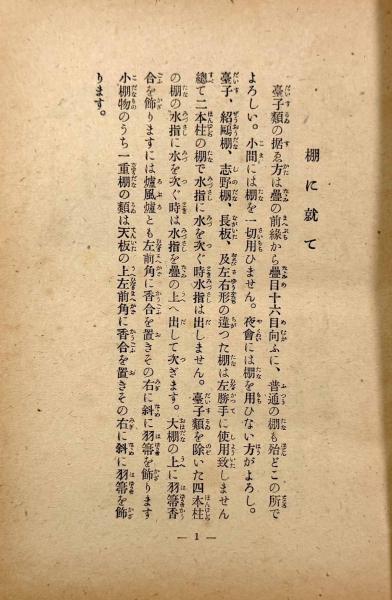 棚に就て
臺子類の据ゑ方は疊の前緣から疊目十六目向ふに、普通の棚も殆どこの所で
よろしい。小間には棚を一切用ひません。夜會には棚を用ひない方がよろし。
臺子、紹鷗棚、志野棚、長板、及左右形の違つた棚は左勝手に使用致しません
總て二本柱の棚で水指に水を次ぐ時水指は出しません。臺子類を除いた四本柱
の棚の水指に水を次ぐ時は水指を疊の上へ出して次ぎます。大棚の上に羽箒香
合を飾りますには爐風爐とも左前角に香合を置きその右に斜に羽箒を飾ります
小棚物のうち一重棚の類は天板の上左前角に香合を置きその右に斜に羽箒を飾
ります。
— 1 —